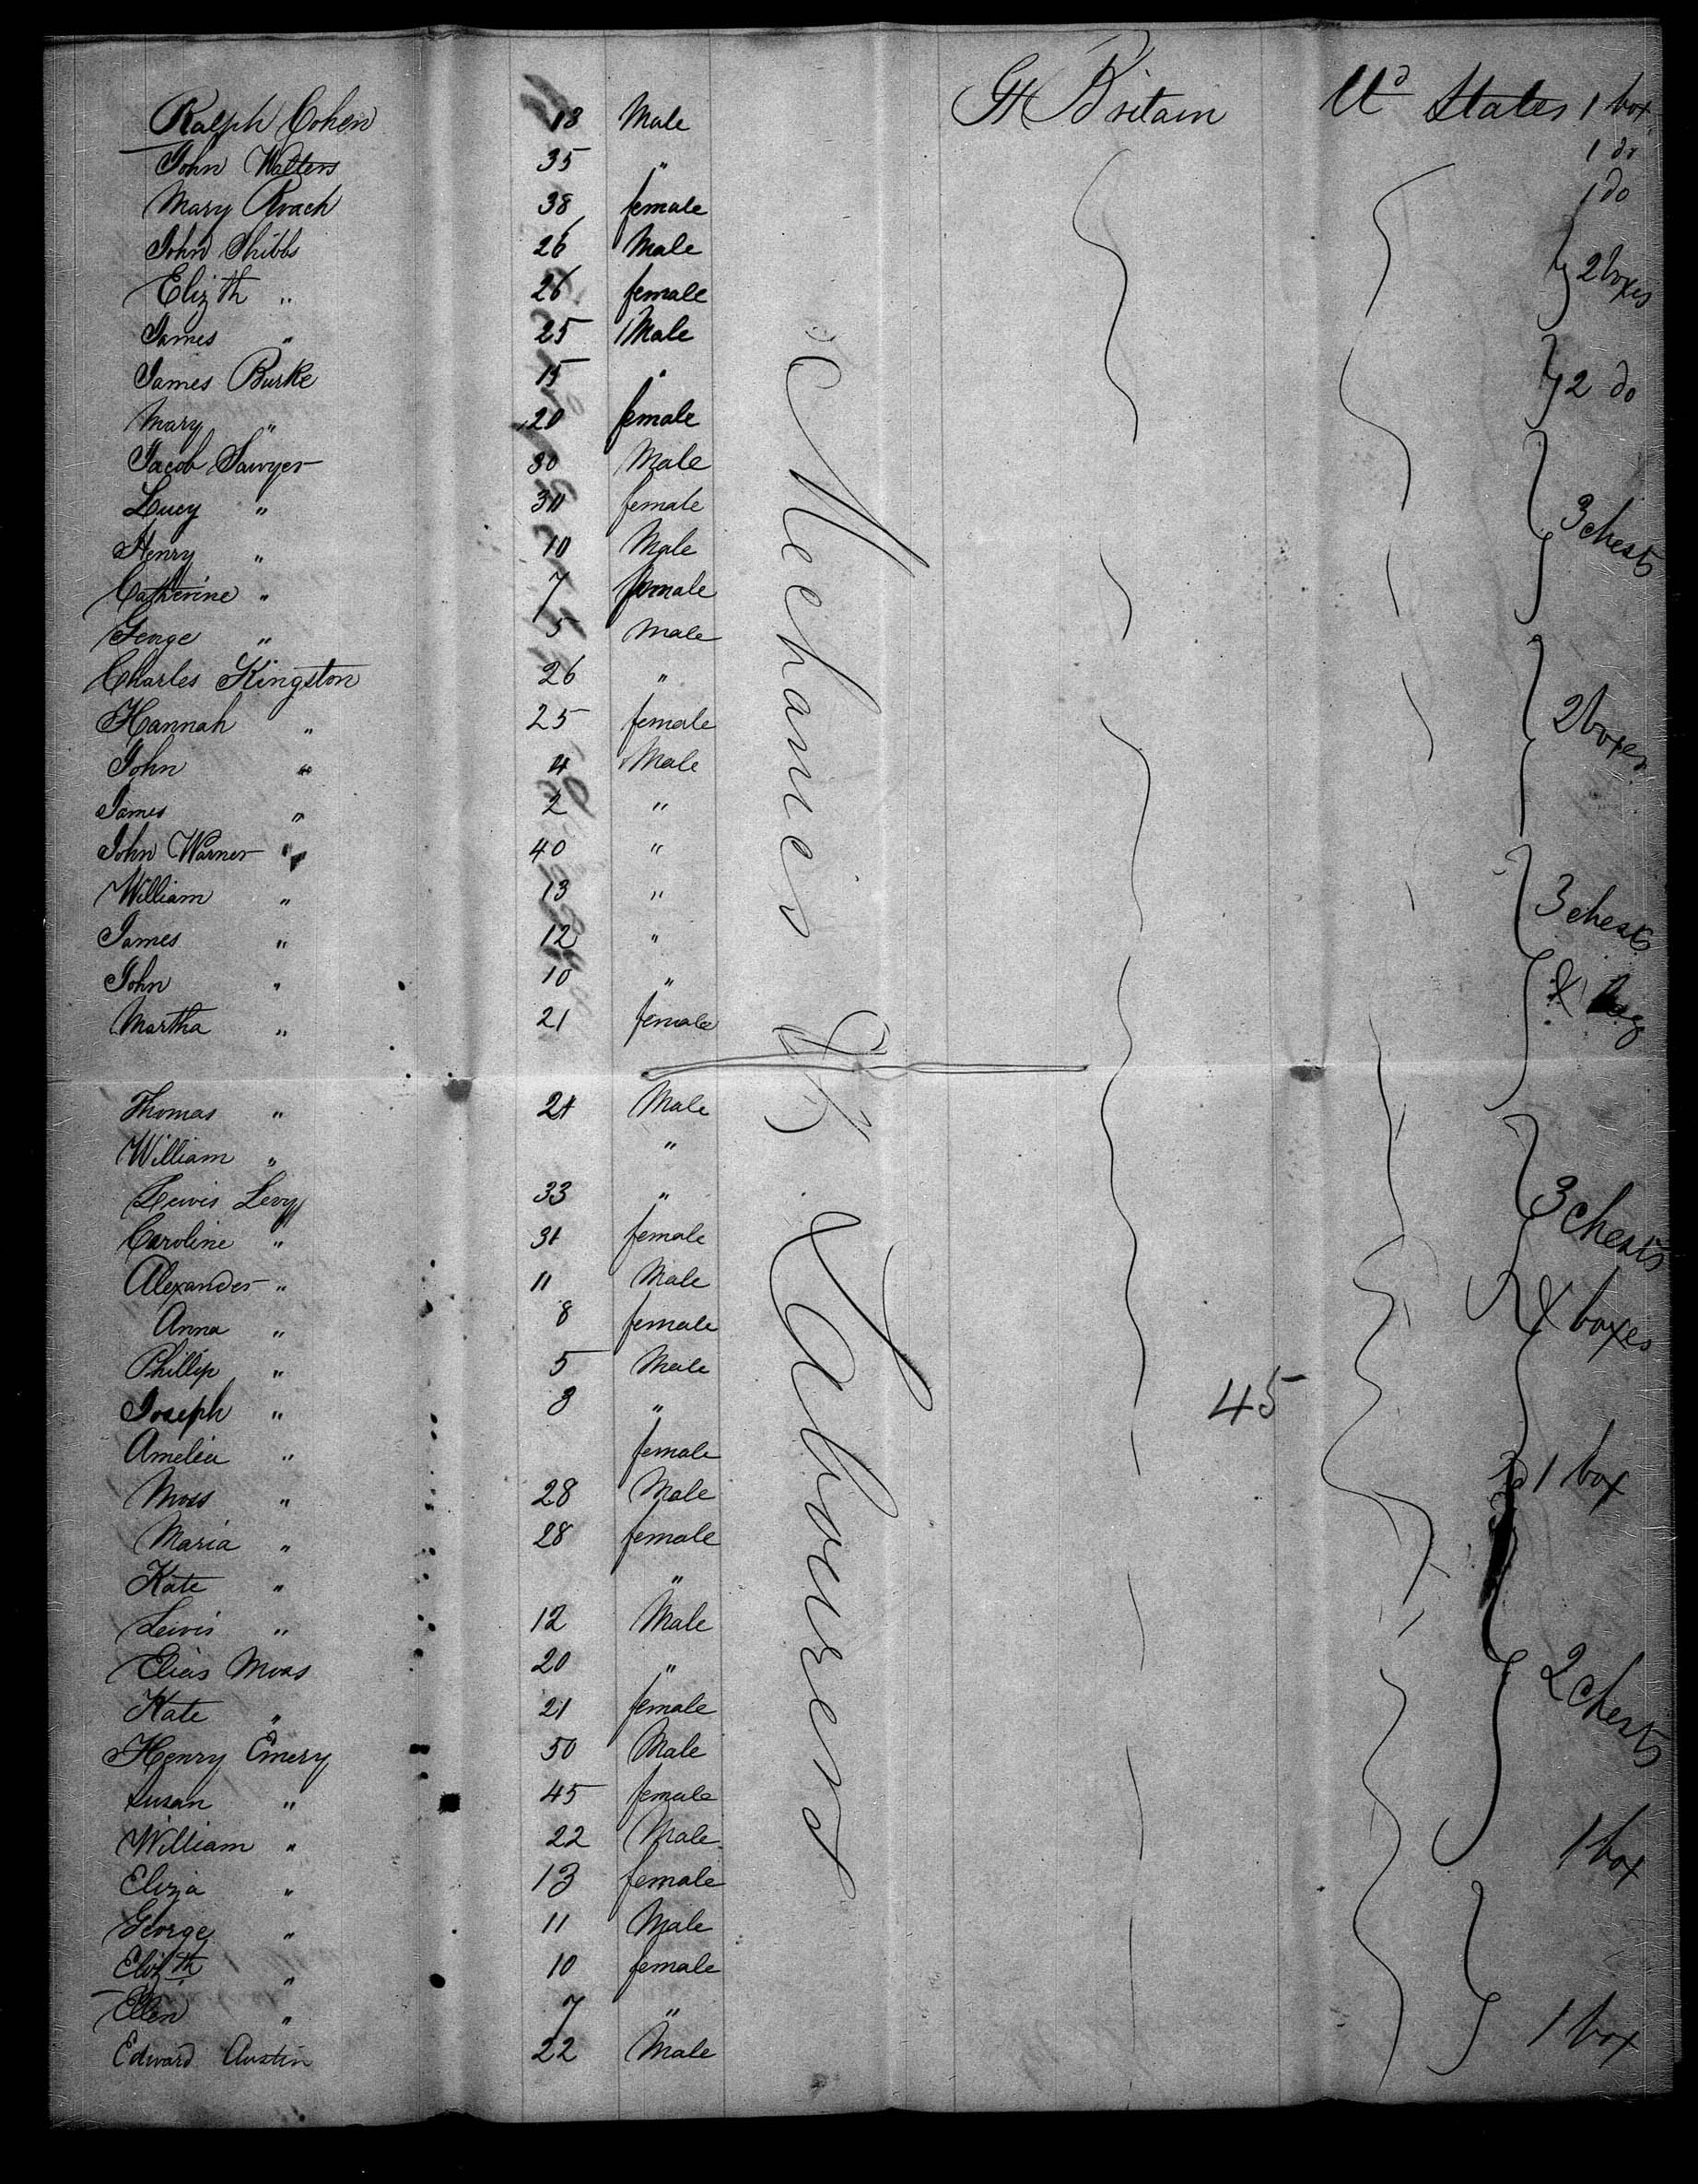 Ralph Cohen 18 Male Gt Britain Ud States 1 box
John Walters 35 " 1 do
Mary Roach 38 female 1 do
John Shibbs 26 Male
Elizth " 26 female 2 boxes
James " 25 Male
James Burke 15 " 2 do
Mary " 20 female
Jacob Sawyer 30 Male
Lucy " female 3 chests
Henry " 10 Male
Catherine " 7 female
George " 5 male
Charles Kingston 26 "
Hannah " 25 female 2 boxes
John " 4 Male
James " 2 "
John Warner " 40 "
William " 13 " 3 chests
James " 12 "
John " 10 " & bag
Martha " 21 female
Mechanics & Labourers
Thomas " 21 Male
William " "
Lewis Levy 33 " 3 chests
Caroline " 31 female
Alexander " 11 Male
Anna " 8 female & boxes
Phillip " 5 Male
Joseph " 3 " 45
Amelia " female
Moss " 28 Male 1 box
Maria " 28 female
Kate " "
Lewis " 12 Male
Elias Moss 20 "
Kate " 21 female 2 chests
Henry Emery 50 Male
Susan " 45 female
William " 22 Male 1 box
Eliza " 13 female
George " 11 Male
Elizth " 10 female
Ellen " 7 "
Edward Austin 22 Male 1 box